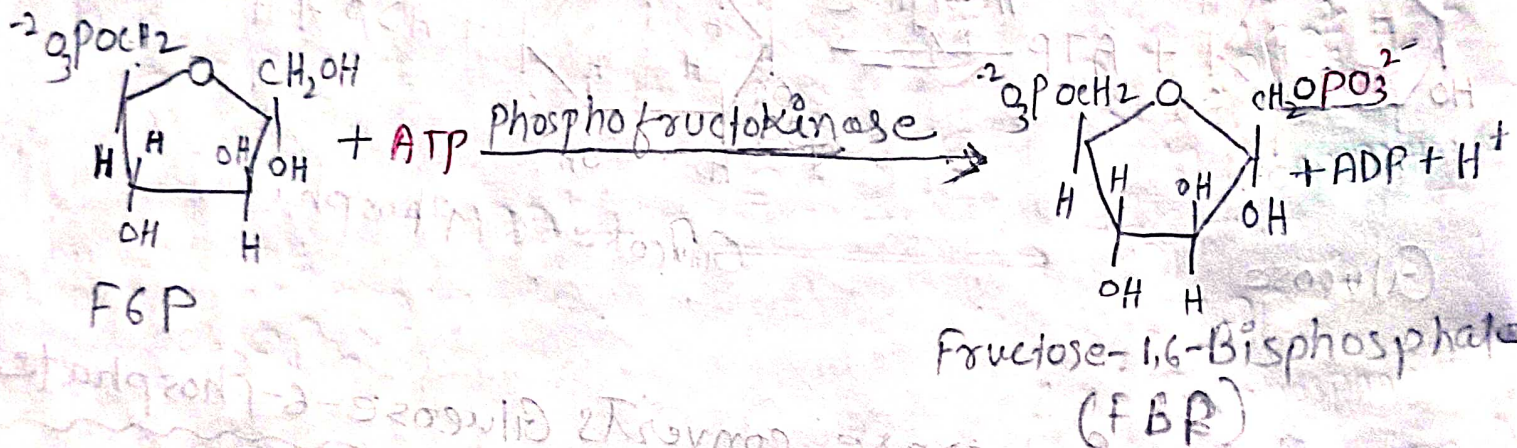 -2O3POCH2 O CH2OH
H H OH OH
OH H
+ ATP Phosphofructokinase
F6P
-2O3POCH2 O CH2OPO3 2-
H H OH OH
OH H
+ ADP + H+
Fructose-1,6-Bisphosphate
(FBP)